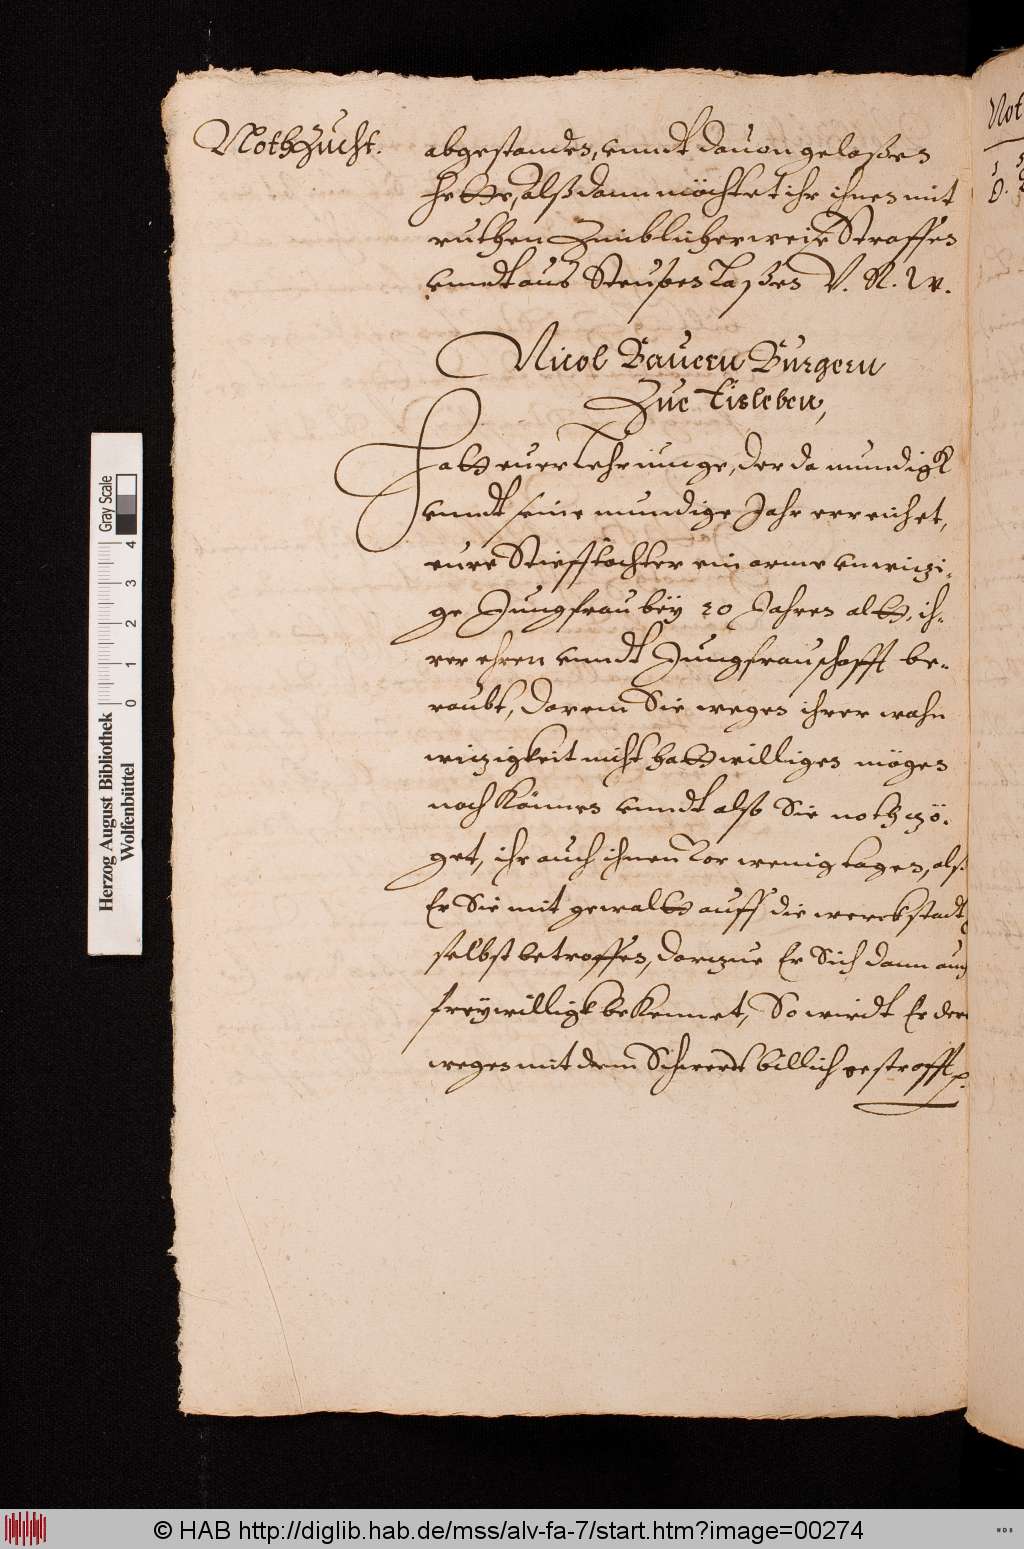 NothZucht.
abgestanden, vnndt dauon gelaßen
hette, alßdann möchtet ihr ihnen mit
ruthen Zimblicher weiße Straffen
vnndt aus Steupen laßen V. R. W.
Nicol Bauern Burgern
Zue Eisleben,
Hatt euer Lehriunge, der da mundigk
vnndt seine mundige Jahr erreichet,
eure Stiefftochter ein arme vnwizi-
ge Jungfrau bëy 20 Jahren altt, ih-
rer ehren vnndt Jungfrauschafft be-
raubt, darein Sie wegen ihrer wahn
wizigkeit nicht hatt willigen mögen
noch Können vnndt also Sie nothzö-
get, ihr auch ihnen vor wenig tagen, alß
Er Sie mit gewaltt auff die werckstadt
selbst betroffen, darzue Er Sich dann auch
freÿwilligk bekennet, So wirdt Er der
wegen mit dem Schwerdt billich gestrafft
Not
Herzog August Bibliothek
Wolfenbüttel
Gray Scale
0 1 2 3 4
© HAB http://diglib.hab.de/mss/alv-fa-7/start.htm?image=00274